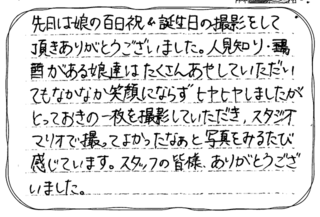 先日は娘の百日祝&誕生日の撮影をして
頂きありがとうございました。人見知り・
がある娘達はたくさんあやしていただい
てもなかなか笑顔にならずヒヤヒヤしましたが
とっておきの一枚を撮影していただき、スタジオ
マリオで撮ってよかったなぁと写真をみるたび
感じています。スタッフの皆様、ありがとうござ
いました。